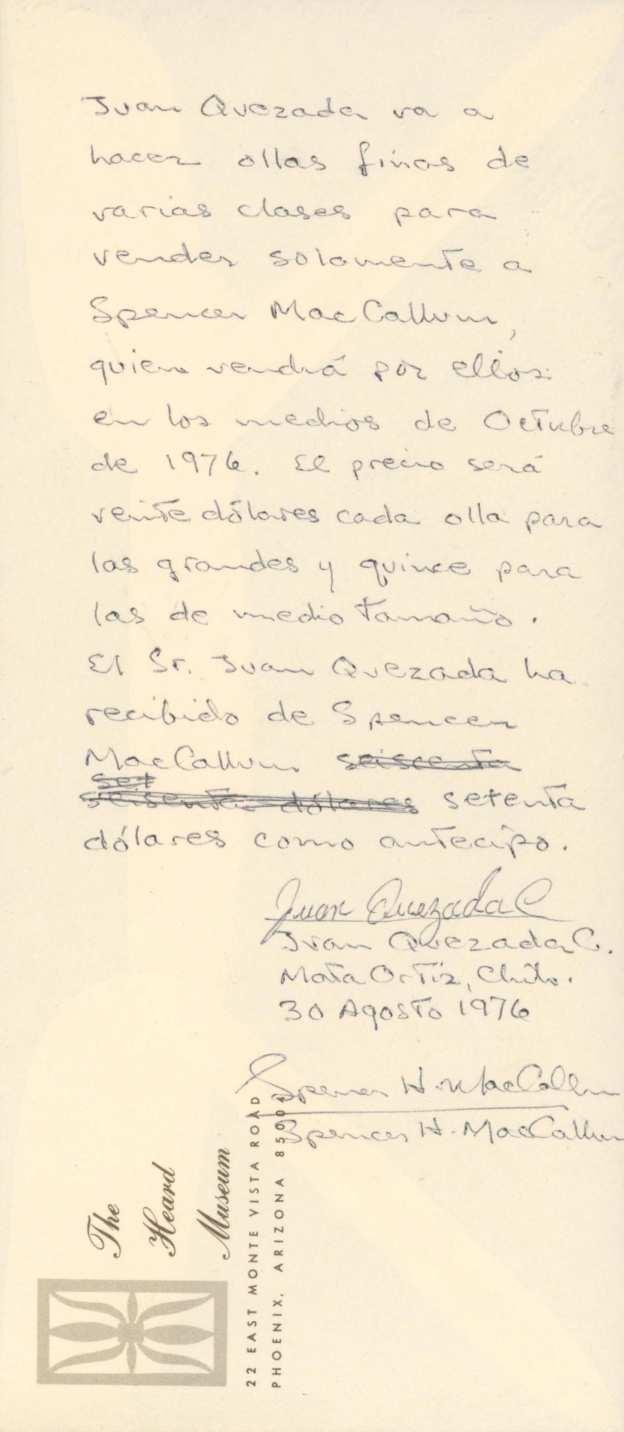 Juan Quezada va a
hacer ollas finas de
varias clases para
vender solamente a
Spencer MacCallum,
quien vendrá por ellos
en los medios de Octubre
de 1976. El precio será
veinte dólares cada olla para
las grandes y quince para
las de medio tamaño.
El Sr. Juan Quezada ha
recibido de Spencer
MacCallum seiscenta
set
seisenta dólares setenta
dólares como antecipo.
Juan Quezada C
Juan Quezada C.
Mata Ortíz, Chih.
30 Agosto 1976
Spencer H. MacCallum
Spencer H. MacCallum
The
Heard
Museum
22 EAST MONTE VISTA ROAD
PHOENIX, ARIZONA 85004